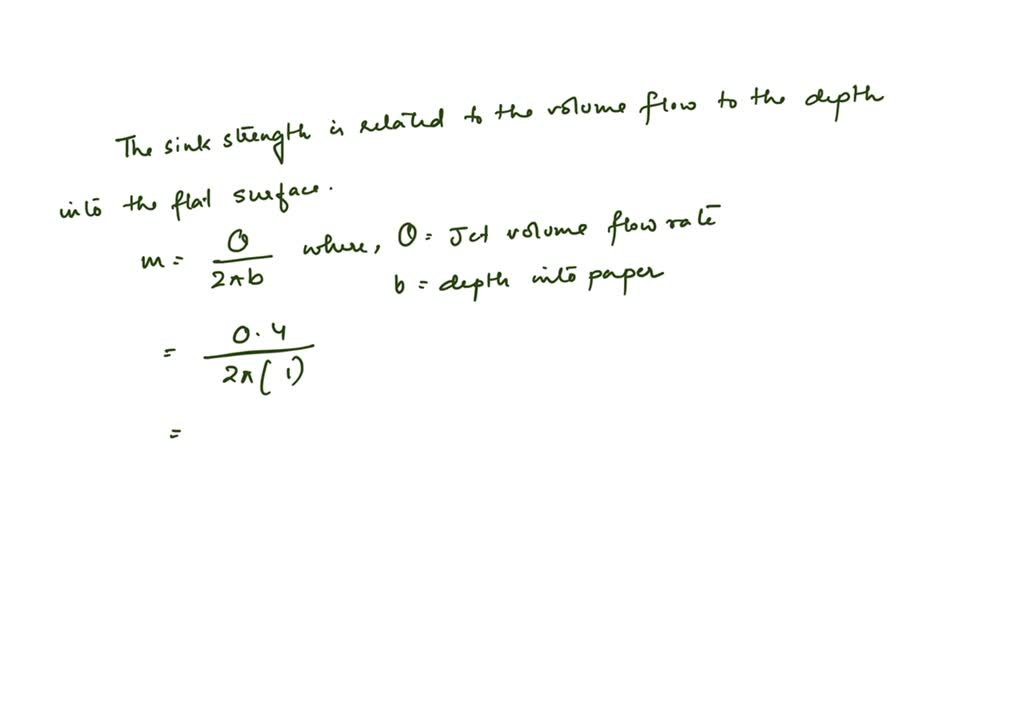 The sink strength is related to the volume flow to the depth
into the flat surface.
m = Q/2πb where, Q = Jet volume flow rate
b = depth into paper
= 0.4/2π(1)
=